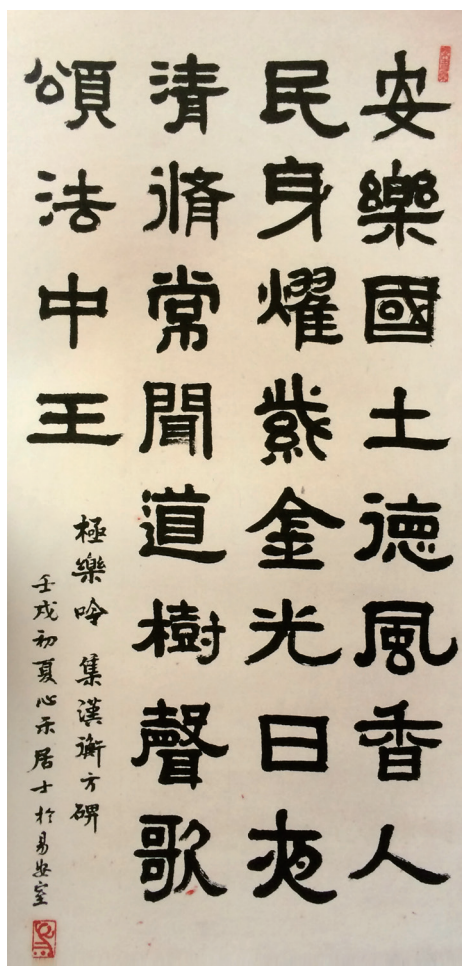 安樂國土德風香人
民身耀紫金光日夜
清脩常聞道樹聲歌
頌法中王
極樂吟 集漢衡方碑
壬戌初夏心禾居士於易安室